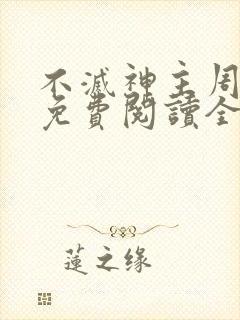 不滅神主周
免費閱讀全
蓮之缘